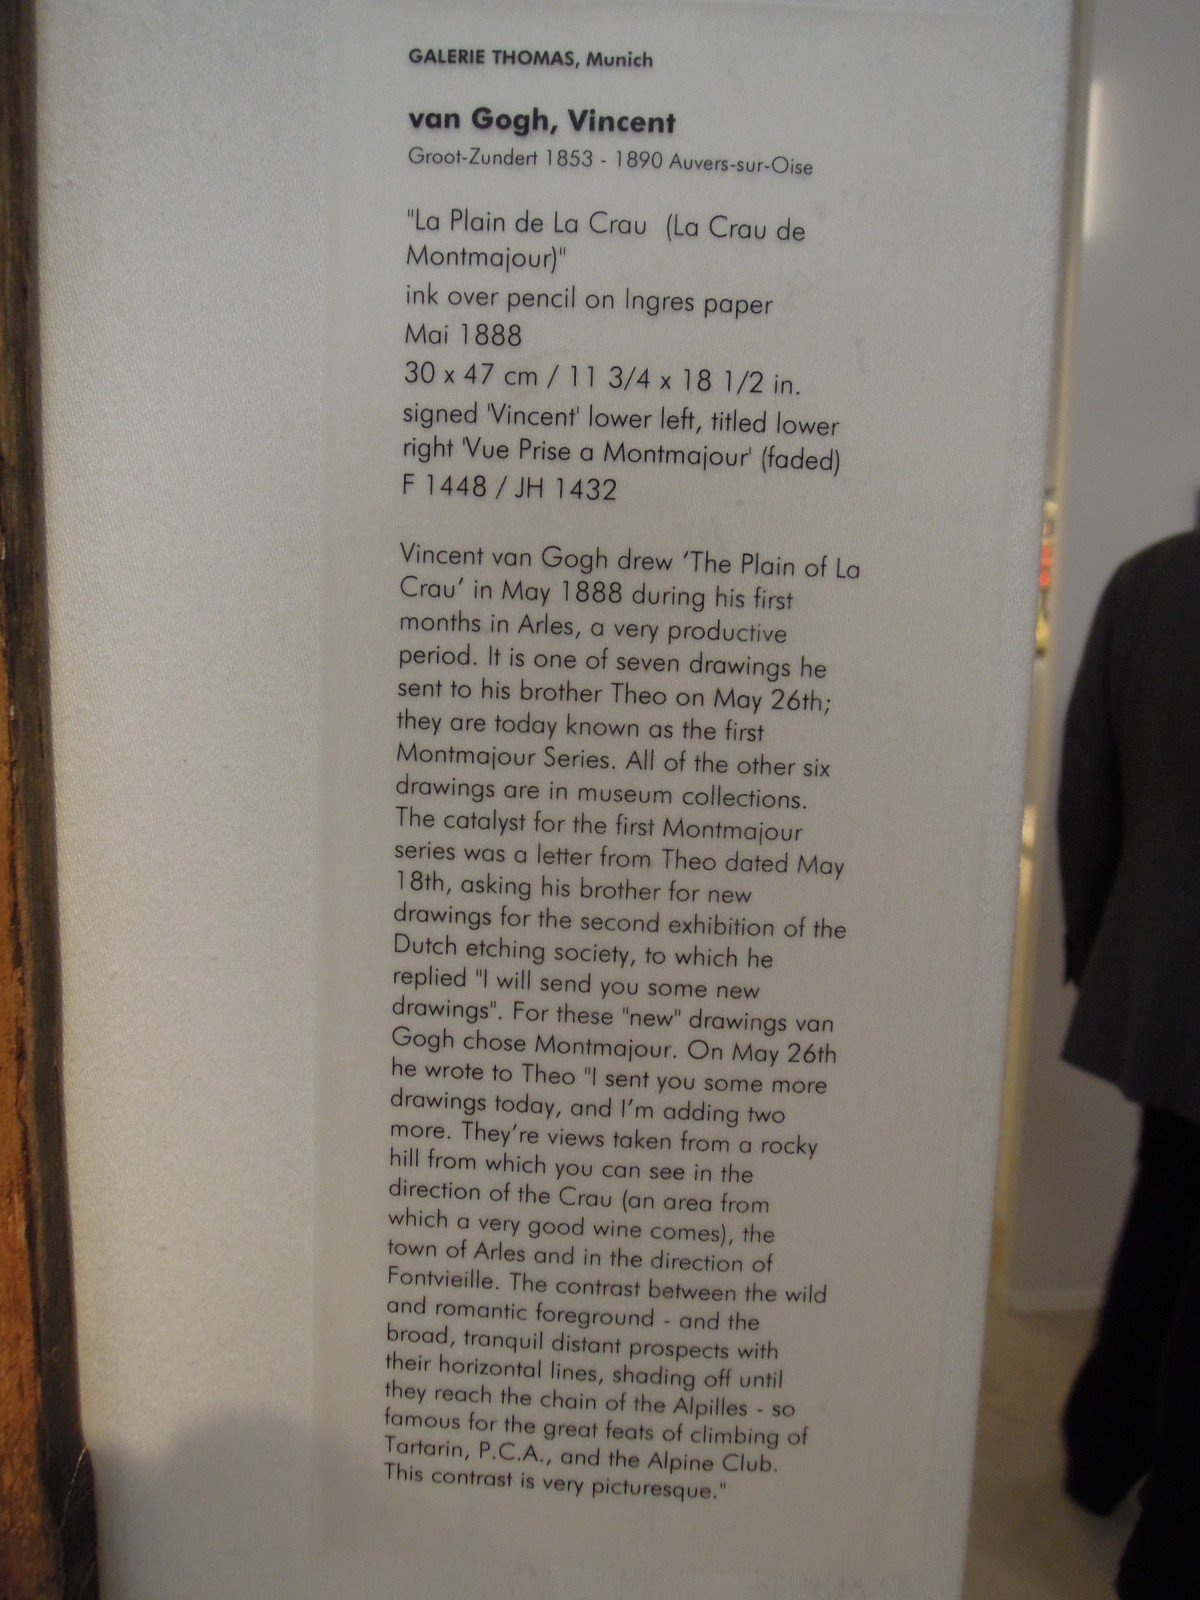 GALERIE THOMAS, Munich
van Gogh, Vincent
Groot-Zundert 1853 - 1890 Auvers-sur-Oise
"La Plain de La Crau (La Crau de
Montmajour)"
ink over pencil on Ingres paper
Mai 1888
30 x 47 cm / 11 3/4 x 18 1/2 in.
signed 'Vincent' lower left, titled lower
right 'Vue Prise a Montmajour' (faded)
F 1448 / JH 1432
Vincent van Gogh drew ‘The Plain of La
Crau’ in May 1888 during his first
months in Arles, a very productive
period. It is one of seven drawings he
sent to his brother Theo on May 26th;
they are today known as the first
Montmajour Series. All of the other six
drawings are in museum collections.
The catalyst for the first Montmajour
series was a letter from Theo dated May
18th, asking his brother for new
drawings for the second exhibition of the
Dutch etching society, to which he
replied "I will send you some new
drawings". For these "new" drawings van
Gogh chose Montmajour. On May 26th
he wrote to Theo "I sent you some more
drawings today, and I’m adding two
more. They’re views taken from a rocky
hill from which you can see in the
direction of the Crau (an area from
which a very good wine comes), the
town of Arles and in the direction of
Fontvieille. The contrast between the wild
and romantic foreground - and the
broad, tranquil distant prospects with
their horizontal lines, shading off until
they reach the chain of the Alpilles - so
famous for the great feats of climbing of
Tartarin, P.C.A., and the Alpine Club.
This contrast is very picturesque."